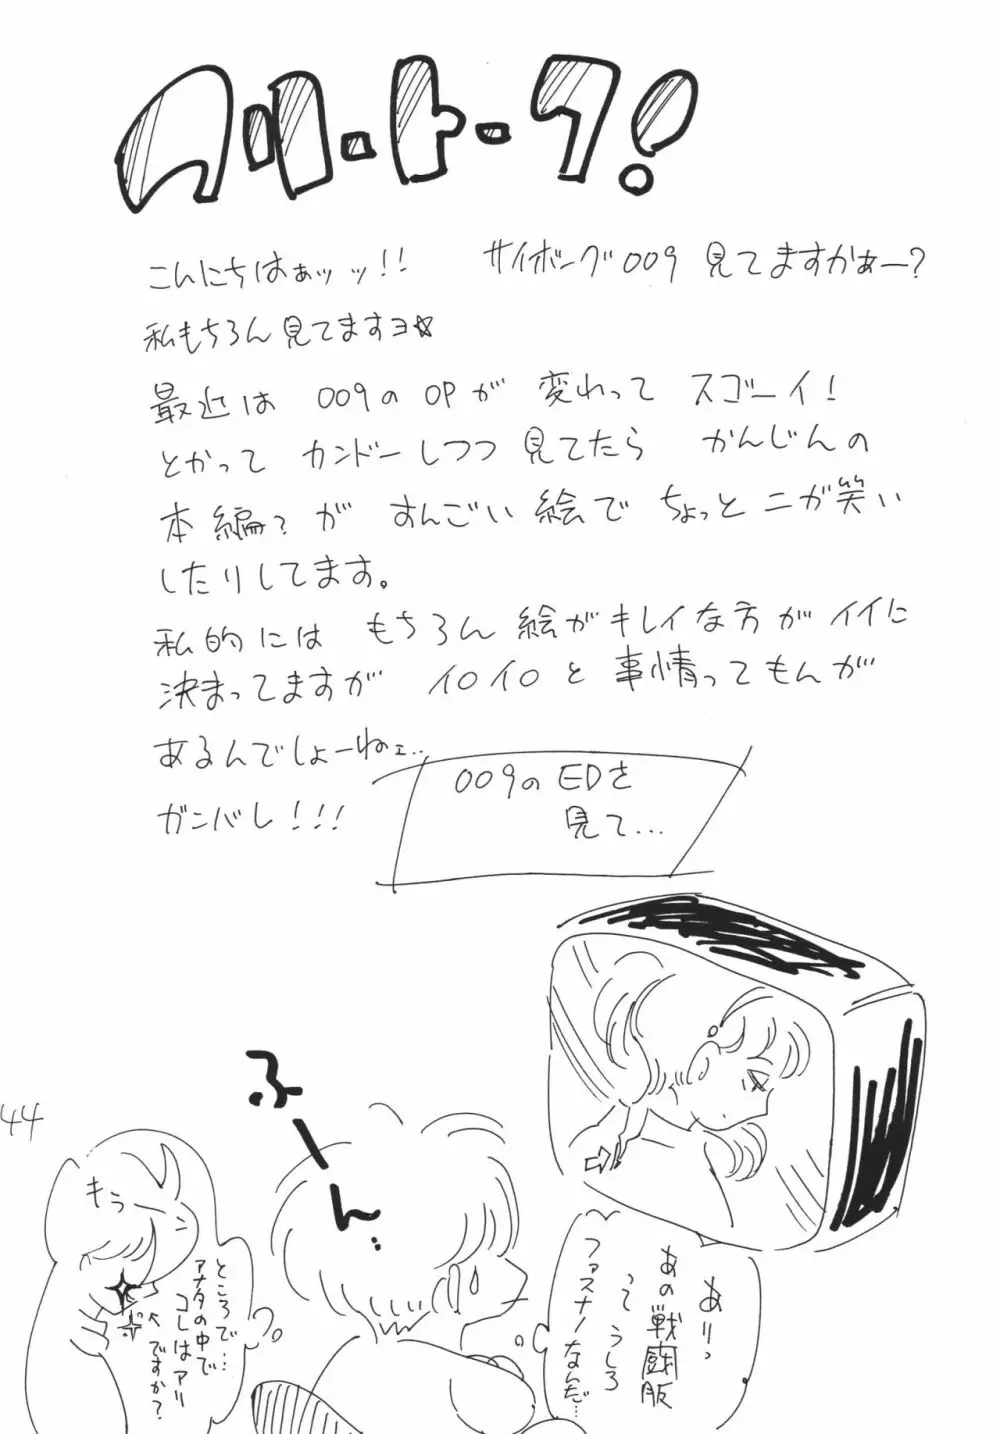 フリートーク!
こんにちはぁッッ!! サイボーグ009 見てますかぁー?
私もちろん見てますヨ☆
最近は 009のOPが 変わって スゴーイ!
とかって カンドーしつつ 見てたら かんじんの
本編?が すんごい絵で ちょっとニガ笑い
したりしてます。
私的には もちろん絵がキレイな方がイイに
決まってますが イロイロと事情ってもんが
あるんでしょーねェ…
ガンバレ!!!
009のEDを
見て…
ふーん…
ありっ
あの戦闘服
って うしろ
ファスナーなんだ…
もぅ
ところで…
アナタの中で
コレはアリ
ですか?
44